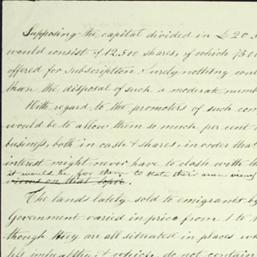 Supposing the capital divided in £20 s
would consist of 12,500 shares of which 7500
offered for Subscription. Surely nothing could
than the disposal of such a moderate numb
With regard to the promoters of such com
would be to allow them so much per cent o
business, both in cash & shares, in order that
interest might never have to clash with th
it would be for them to state their own views
views on that topic.
The lands lately sold to emigrants by
Government varied in price from 1 to
though they are all situated in places wh
which do not contain